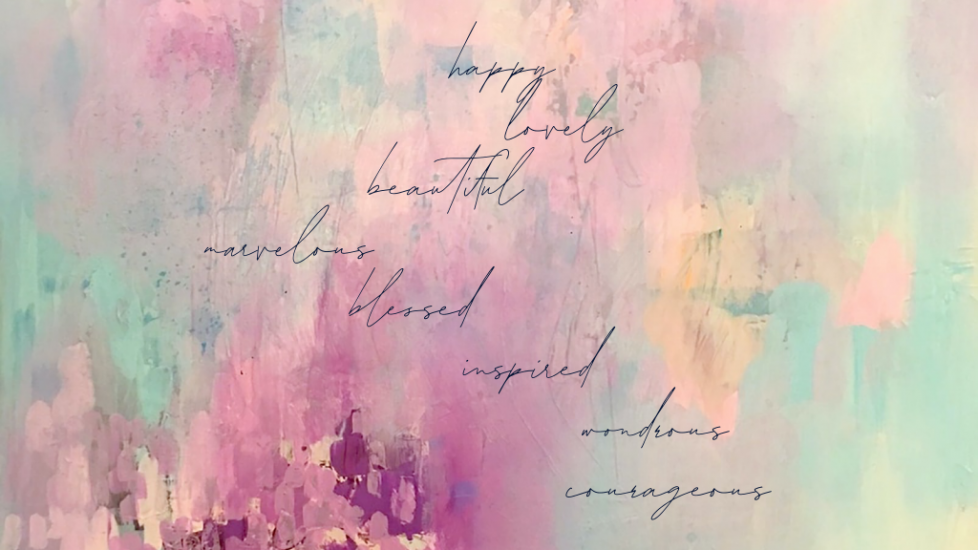 happy
lovely
beautiful
marvelous
blessed
inspired
wondrous
courageous